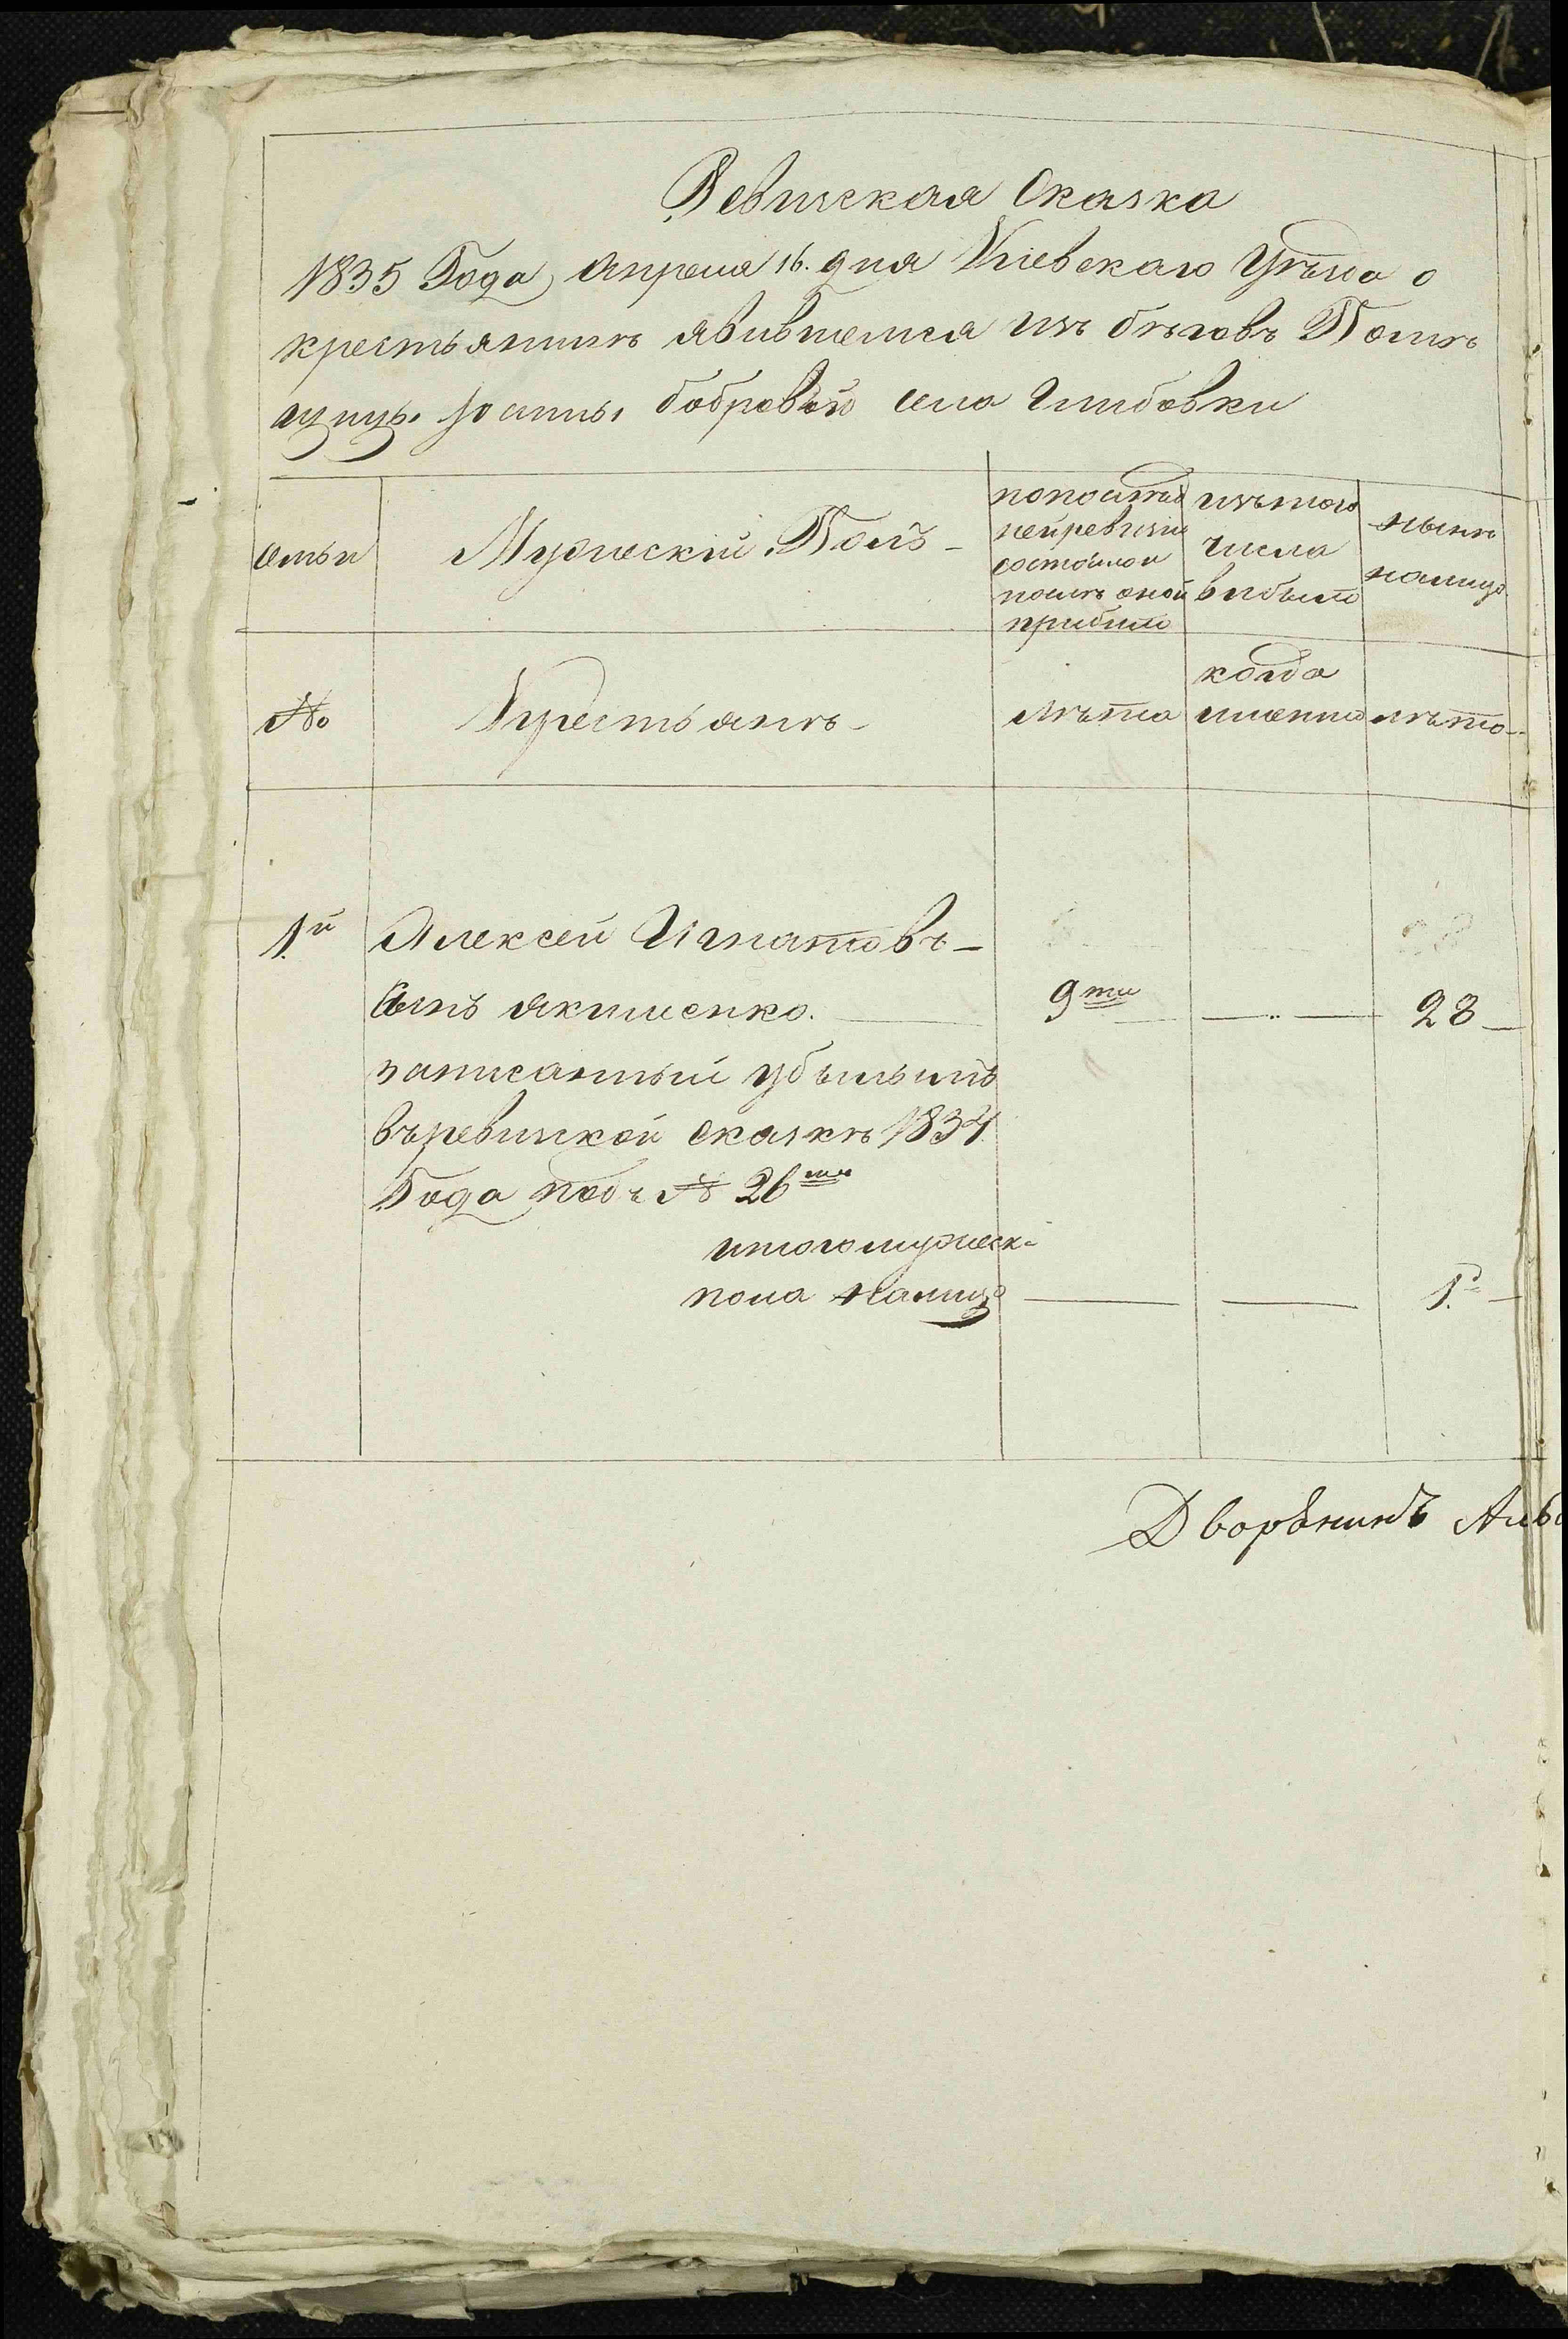 Ревижская Сказка
1835 Года, Апреля 16. дня Кіевскаго Уѣзда о
крестьянинѣ явившемся изъ бѣговъ Помѣ
щицы Юстины Бобровой села Глибовки
семьи
Мужескій Полъ
попослѣд
ней ревизіи
состояло и
послѣ оной
прибыло
изъ того
числа
выбыло
нынѣ
налицо
№
Крестьянѣ
лѣта
когда
именно
лѣта
1й Алексей Игнатовъ
сынъ Якименко. 9ти — 28
записанный убылымъ
въ ревизской сказкѣ 1834
Года подъ № 26мъ
итого мужеск
пола налицо — — 1
Дворянинъ